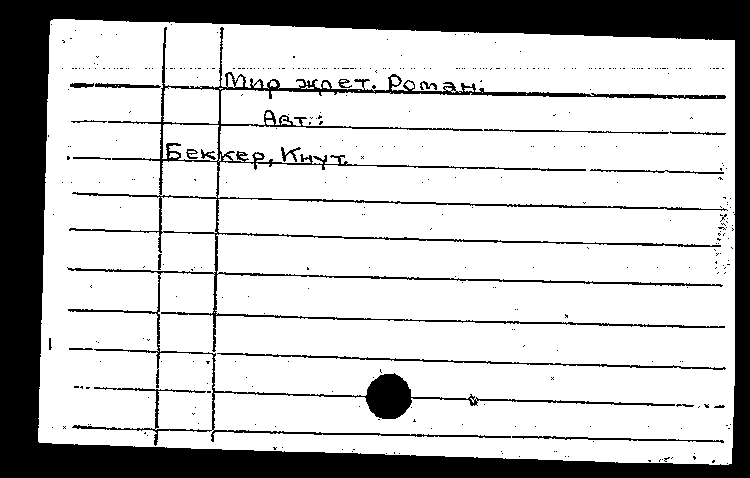 Мир ждет. Роман.
Авт.:
Беккер, Кнут.